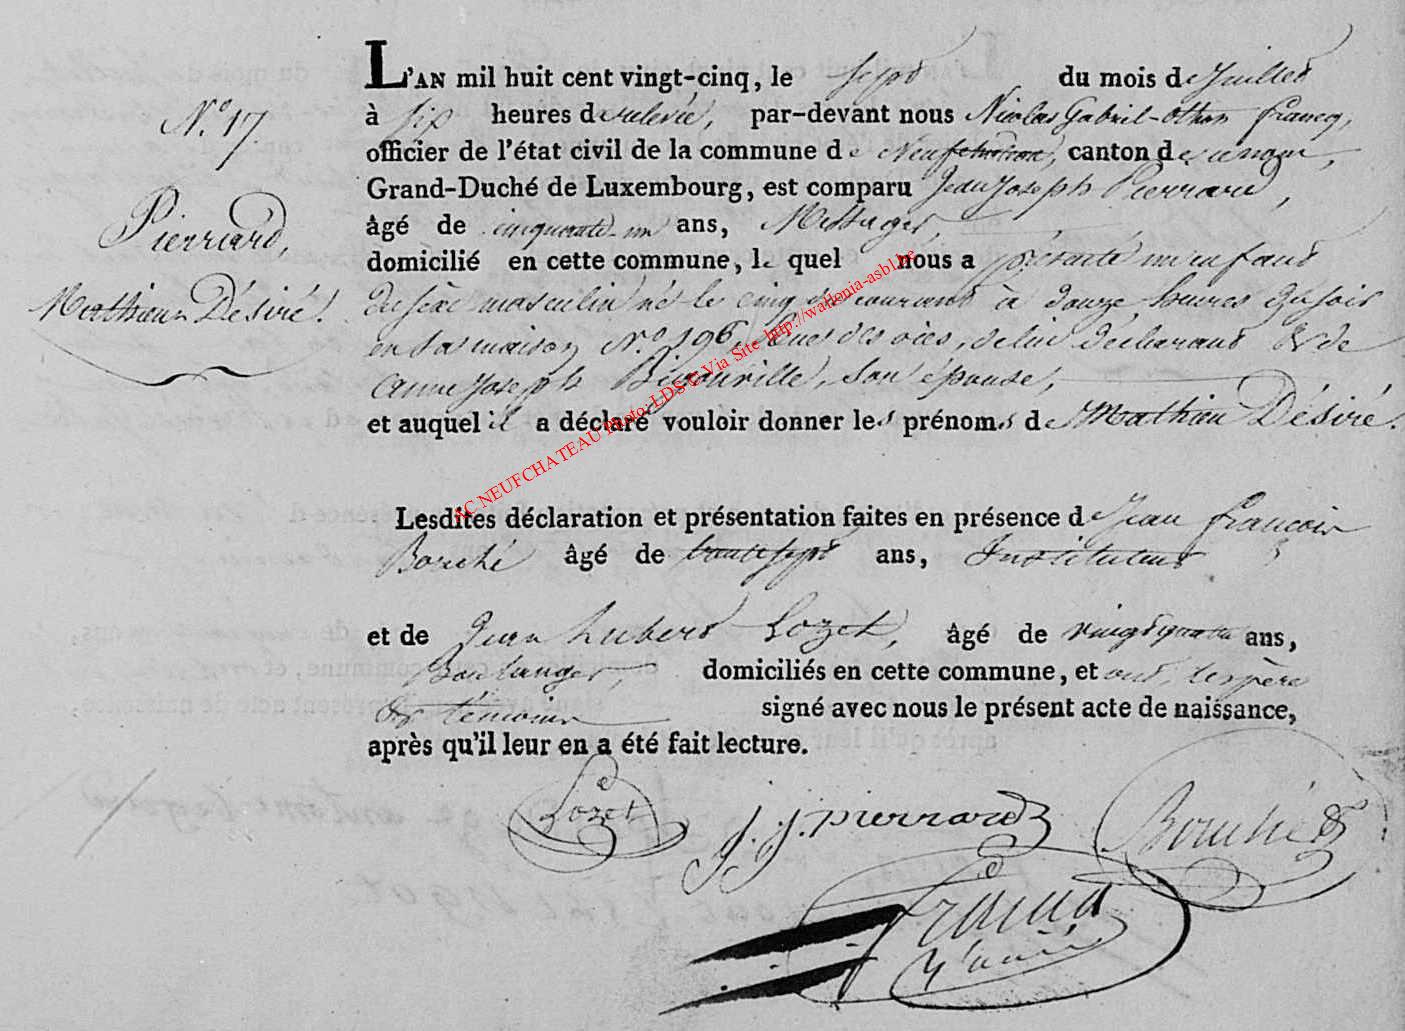 N.° 17
Pierrard,
Mathieu Désiré.
L'AN mil huit cent vingt-cinq, le sept du mois de Juillet
à six heures de relevée, par-devant nous Nicolas Gabriel-Othon Francq,
officier de l'état civil de la commune de Neufchateau, canton de ce nom,
Grand-Duché de Luxembourg, est comparu Jean Joseph Pierrard,
âgé de cinquante-un ans, Messager,
domicilié en cette commune, le quel nous a présenté un enfant
du sexe masculin né le cinq du courant à douze heures du soir
en sa maison N.° 196, Rue des oies, de lui déclarant & de
Anne Joseph Bigonville, son épouse,
et auquel il a déclaré vouloir donner les prénoms de Mathieu Désiré.
Lesdites déclaration et présentation faites en présence de Jean François
Bouché âgé de trente sept ans, Instituteur
et de Jean hubert Lozet, âgé de vingt quatre ans,
Boulanger, domiciliés en cette commune, et ont, les père
et témoins signé avec nous le présent acte de naissance,
après qu'il leur en a été fait lecture.
Lozet J. J. pierrard Bouché
Francq
AC NEUFCHATEAU Photo: LDS © Via Site http://wallonia-asbl.be